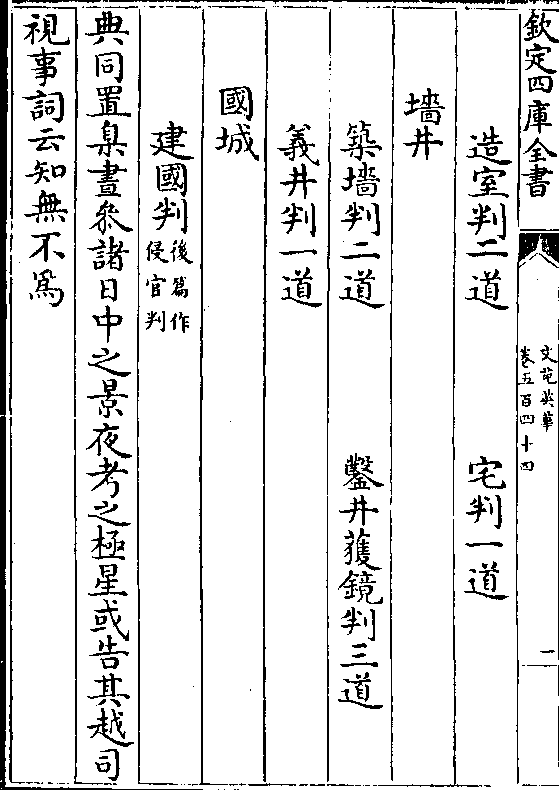 欽定四庫全書
文苑英華
卷五百四十四
一
造室判二道 宅判一道
墻井
築墻判二道 鑿井獲鏡判三道
義井判一道
國城
建國判後篇作侵官判
典同置臬晝參諸日中之景夜考之極星或告其越司
視事詞云知無不為